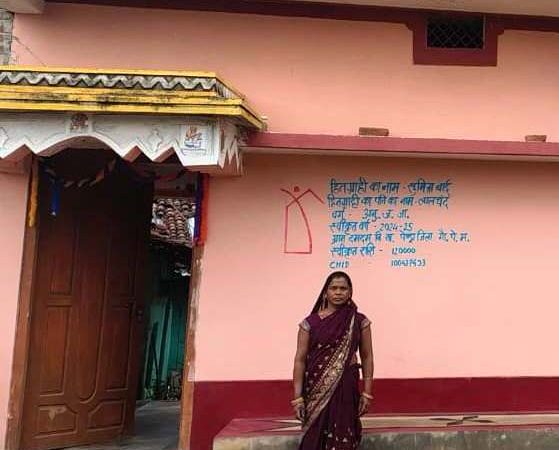 हितग्राही का नाम - सुमित्रा बाई
हितग्राही का पति का नाम - लालचंद
वर्ग - अनु. ज. जा.
स्वीकृत वर्ष - 2024-25
ग्राम दमदम वि. ख. पेण्ड्रा जिला गौ. पे. म.
स्वीकृत राशि - 120000
CHID -